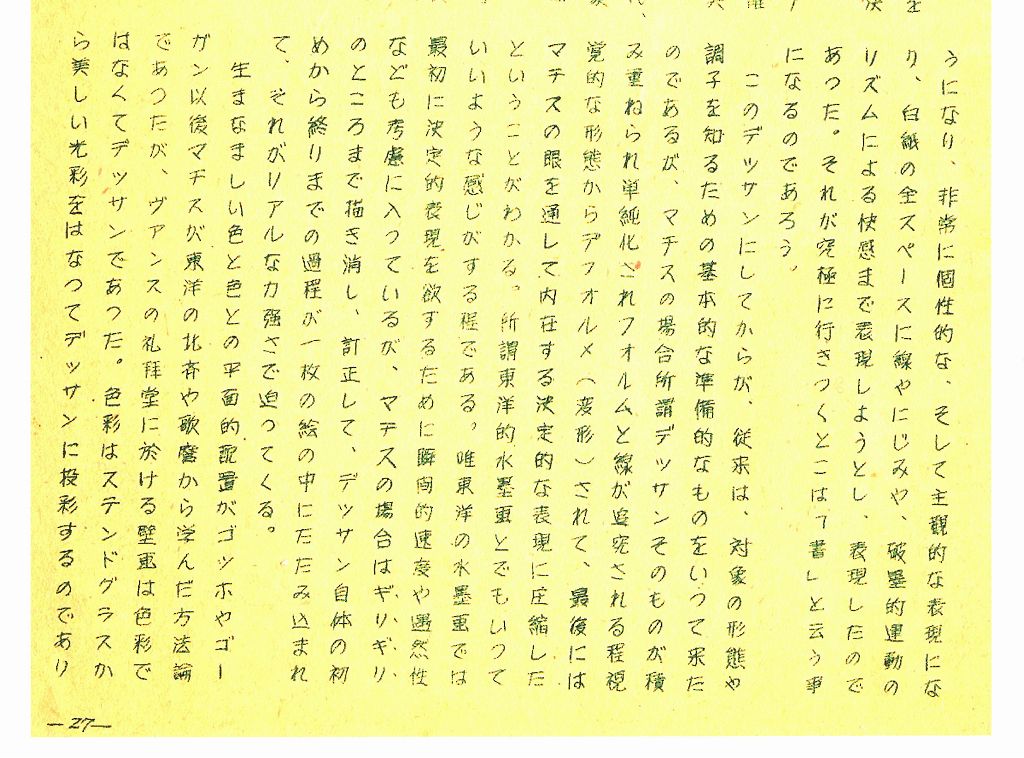 うになり、非常に個性的な、そして主観的な表現にな
り、白紙の全スペースに線やにじみや、破墨的運動の
リズムによる快感まで表現しようとし、表現したので
あつた。それが究極に行きつくとこは「書」と云う事
になるのであろう。
このデッサンにしてからが、従来は、対象の形態や
調子を知るための基本的な準備的なものをいつて来た
のであるが、マチスの場合所謂デッサンそのものが積
み重ねられ単純化されフオルムと線が追究される程視
覚的な形態からデフオルメ(変形)されて、最後には
マチスの眼を通して内在する決定的な表現に圧縮した
ということがわかる。所謂東洋的水墨画とでもいつて
いいような感じがする程である。唯東洋の水墨画では
最初に決定的表現を欲するために瞬間的速度や偶然性
なども考慮に入つているが、マチスの場合はギリ、ギリ、
のところまで描き消し、訂正して、デッサン自体の初
めから終りまでの過程が一枚の絵の中にたたみ込まれ
て、それがリアルな力強さで迫つてくる。
生まなましい色と色との平面的配置がゴッホやゴー
ガン以後マチスが東洋の北斉や歌麿から学んだ方法論
であつたが、ヴァンスの礼拝堂に於ける壁画は色彩で
はなくてデッサンであつた。色彩はステンドグラスか
ら美しい光彩をはなつてデッサンに投彩するのであり
—27—